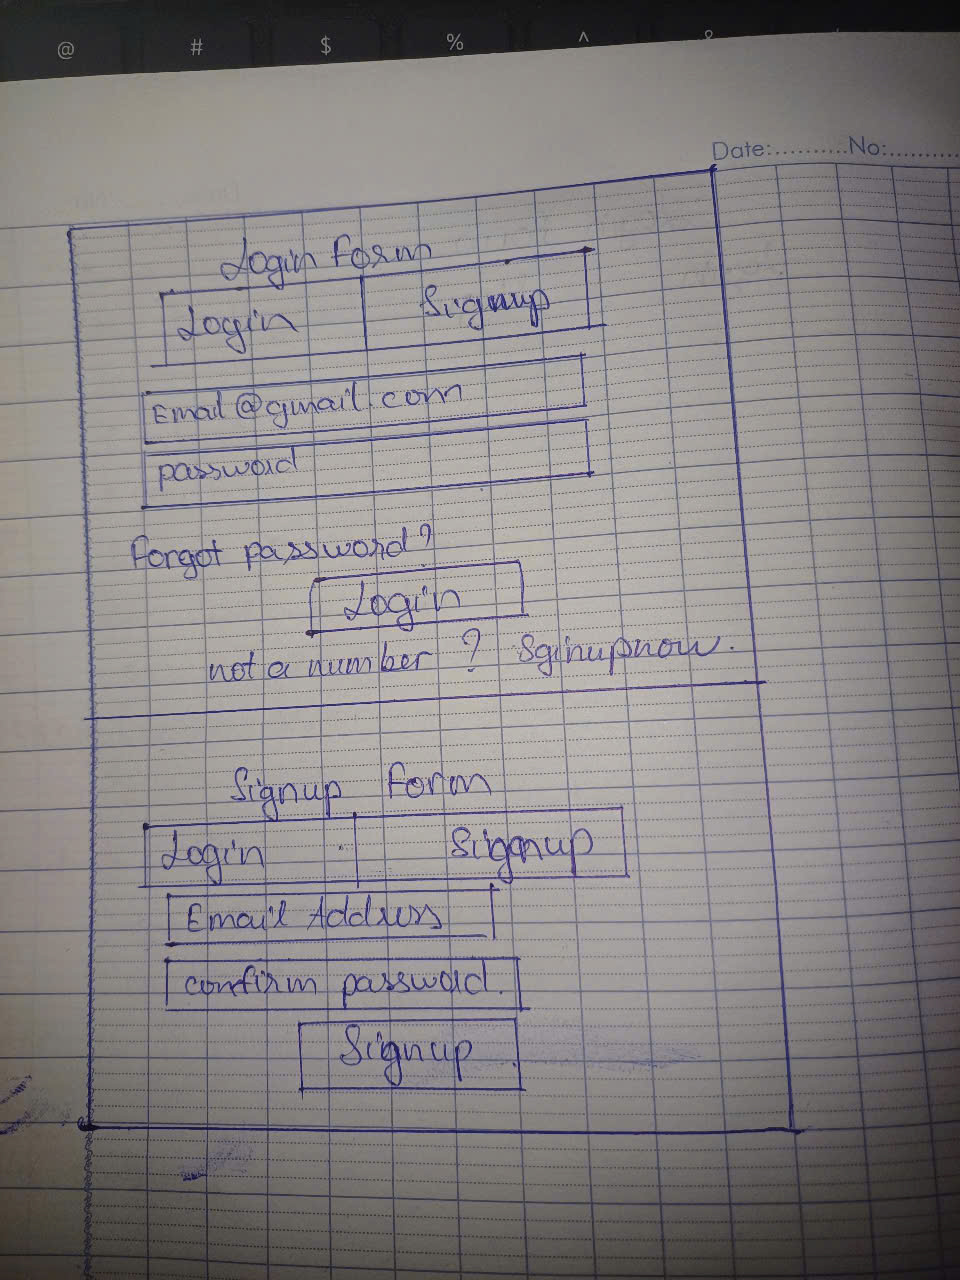 @ # $ % ^ &
Date:.......... No:..........
Login Form
Login Signup
Email@gmail.com
password
Forgot password?
Login
not a number ? Sginupnow.
Signup Form
Login Signup
Email Address
confirm password.
Signup